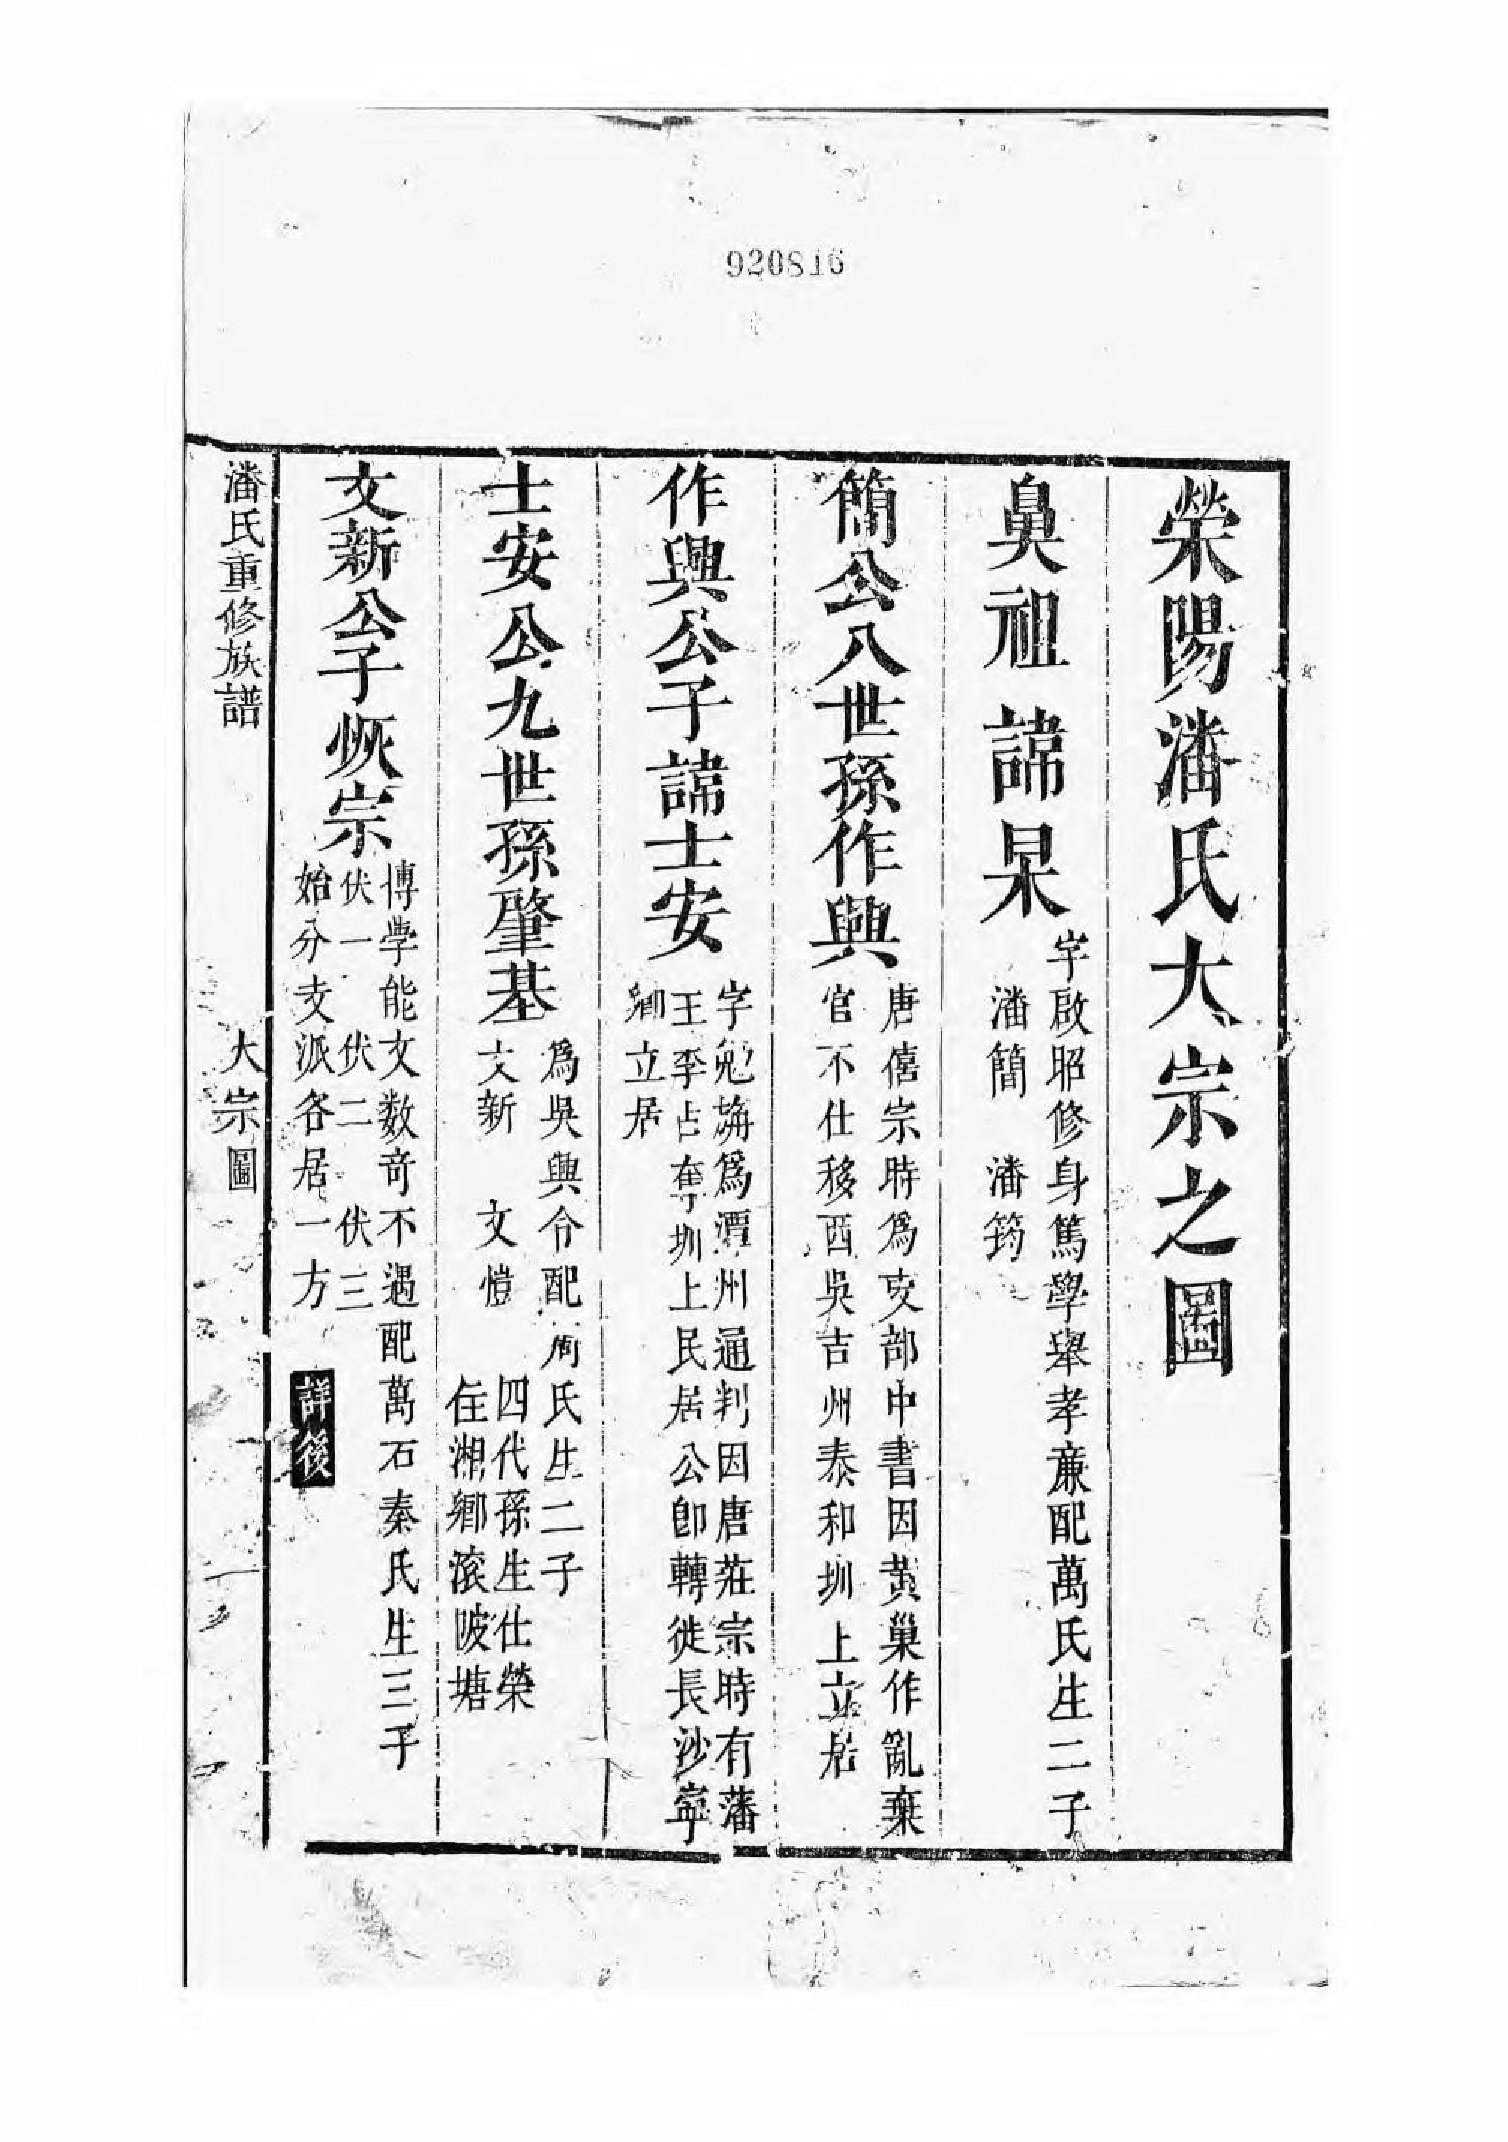 920816
榮陽潘氏大宗之圖
鼻祖諱杲
字啟昭修身篤學舉孝亷配萬氏生二子
潘簡　潘筠
簡公八世孫作興
唐僖宗時爲吏部中書因黃巢作亂棄
官不仕移西吳吉州泰和圳上立居
作興公子諱士安
字勉旃爲潭州通判因唐莊宗時有藩
王李占奪圳上民居公卽轉徙長沙寧
鄉立居
士安公九世孫肇基
爲吳興令配周氏生二子
文新　文愷
四代孫生仕榮
住湘鄉滚陂塘
文新公子恢宗
博學能文数竒不遇配萬石秦氏生三子
伏一　伏二　伏三
始分支派各居一方
詳後
潘氏重修族譜
大宗圖